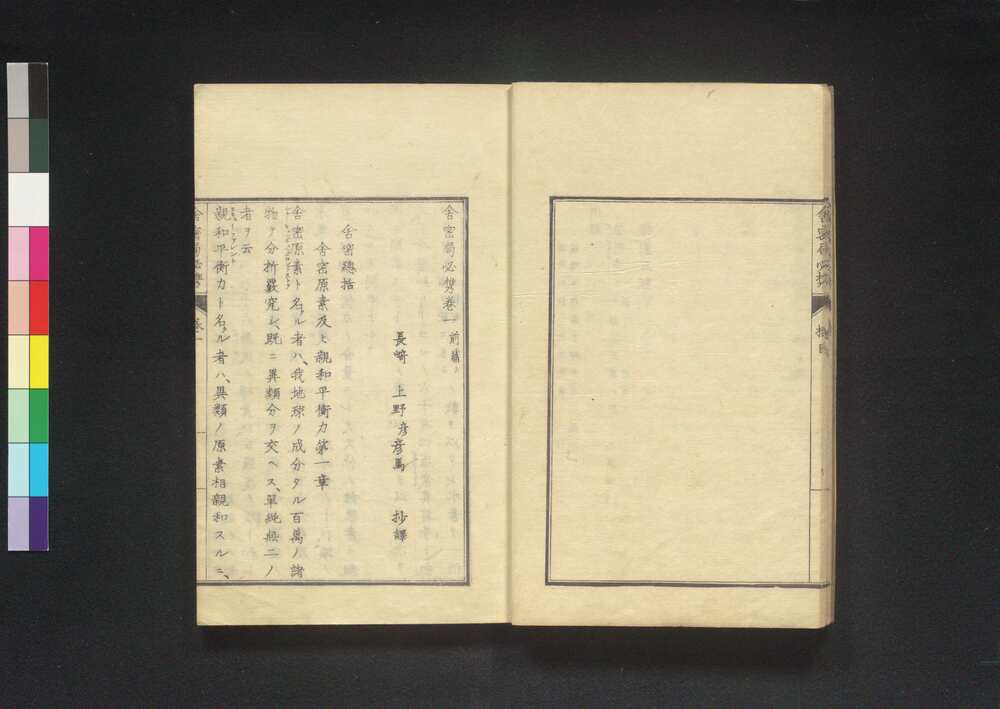 舍密局必携
舍密局必携卷一 前編
長崎 上野彦馬 抄譯
舍密總括
舍密原素及ヒ親和平衡力第一章
舍密原素ト名クル者ハ、我地球ノ成分タル百萬ノ諸
物ヲ分析覈究シ、既ニ異類分ヲ交ヘス、單純無二ノ
者ヲ云
親和平衡力ト名クル者ハ、異類ノ原素相親和スルニ、
舍密局必携 卷一